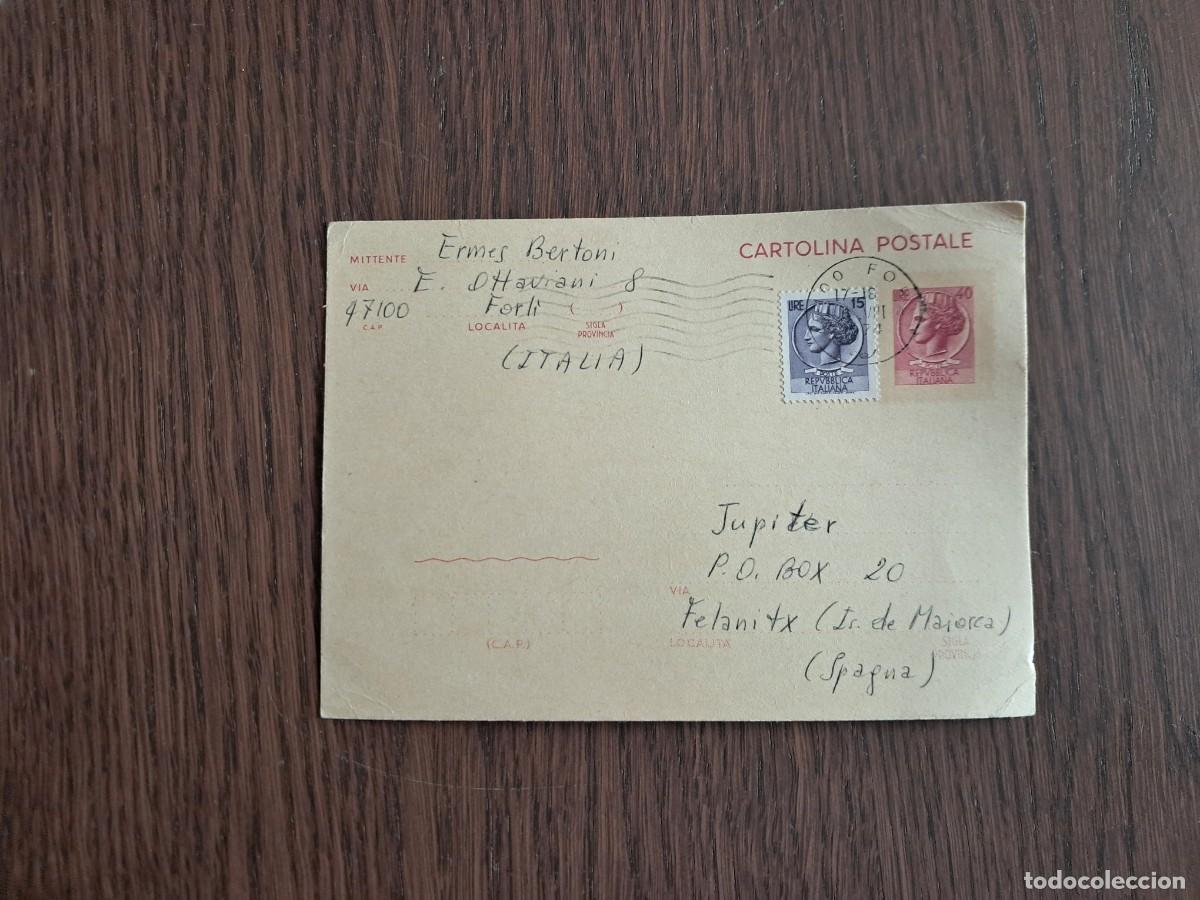 CARTOLINA POSTALE
MITTENTE Ermes Bertoni
VIA E. Ottaviani 8
47100 Forlì ( )
C.A.P. LOCALITÀ SIGLA PROVINCIA
(ITALIA)
17-18
LIRE 15
POSTE
REPVBBLICA
ITALIANA
LIRE 40
POSTE
REPVBBLICA
ITALIANA
Jupiter
P.O. BOX 20
VIA
Felanitx (Is. de Maiorca)
(C.A.P.) LOCALITÀ SIGLA PROVINCIA
(Spagna)
todocoleccion